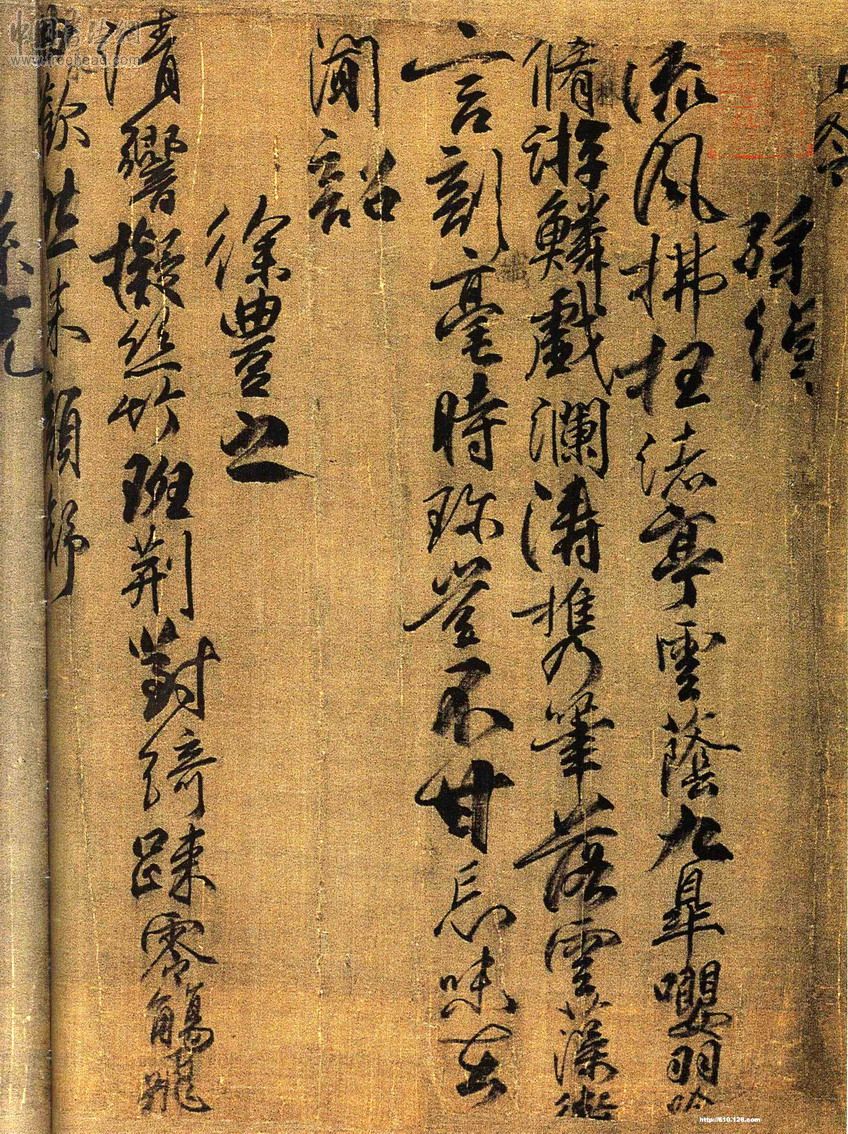 孫綽
流風拂枉渚亭雲蔭九皋嚶羽吟
脩竹游鱗戲瀾濤攜筆落雲藻微
言剖纖毫時珍豈不甘忘味在
聞韶
徐豐之
清響擬絲竹班荊對綺疎零觴飛
歡然朱顏舒
http://610.126.com